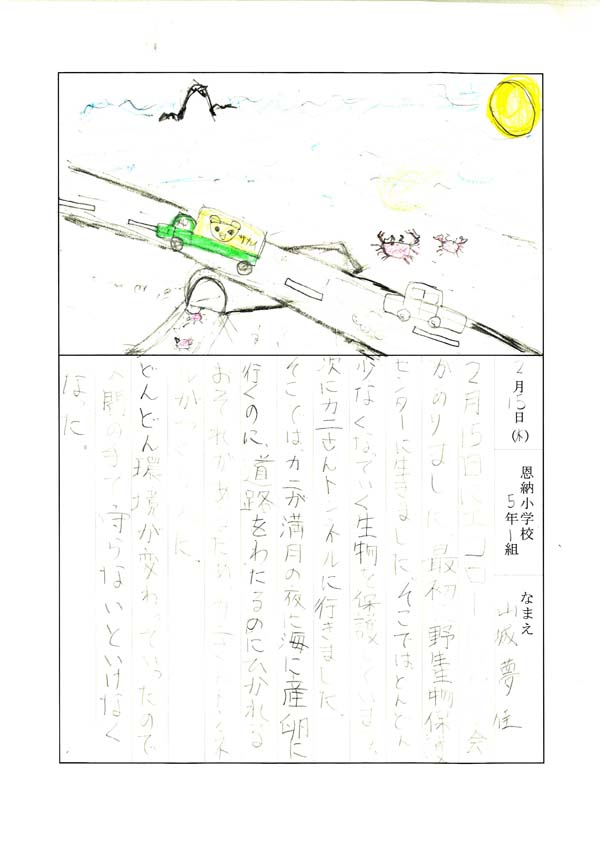 サカイ
2月15日(木)
恩納小学校
5年1組
なまえ
山城夢佳
2月15日にエコロー 会
かのりました 最初 野生生物保護
センターに生きました。そこではどんどん
少なくなていく生物を保護しています。
次にカニさんトンネルに行きました。
そこでは、カニが満月の夜に海に産卵に
行くのに、道路をわたるのにひかれる
おそれがあ ため カ さんトンネ
ルが
どんどん環境が変わっていったので
人間の手で守らないといけなく
なった。